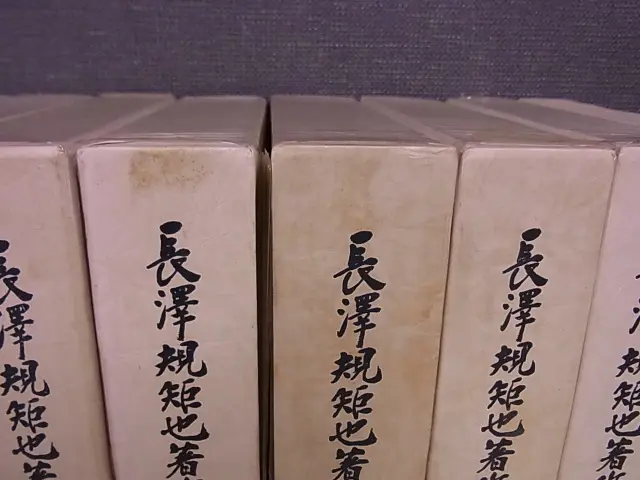 長澤規矩也著
長澤規矩也著
長澤規矩也著
長澤規矩也著